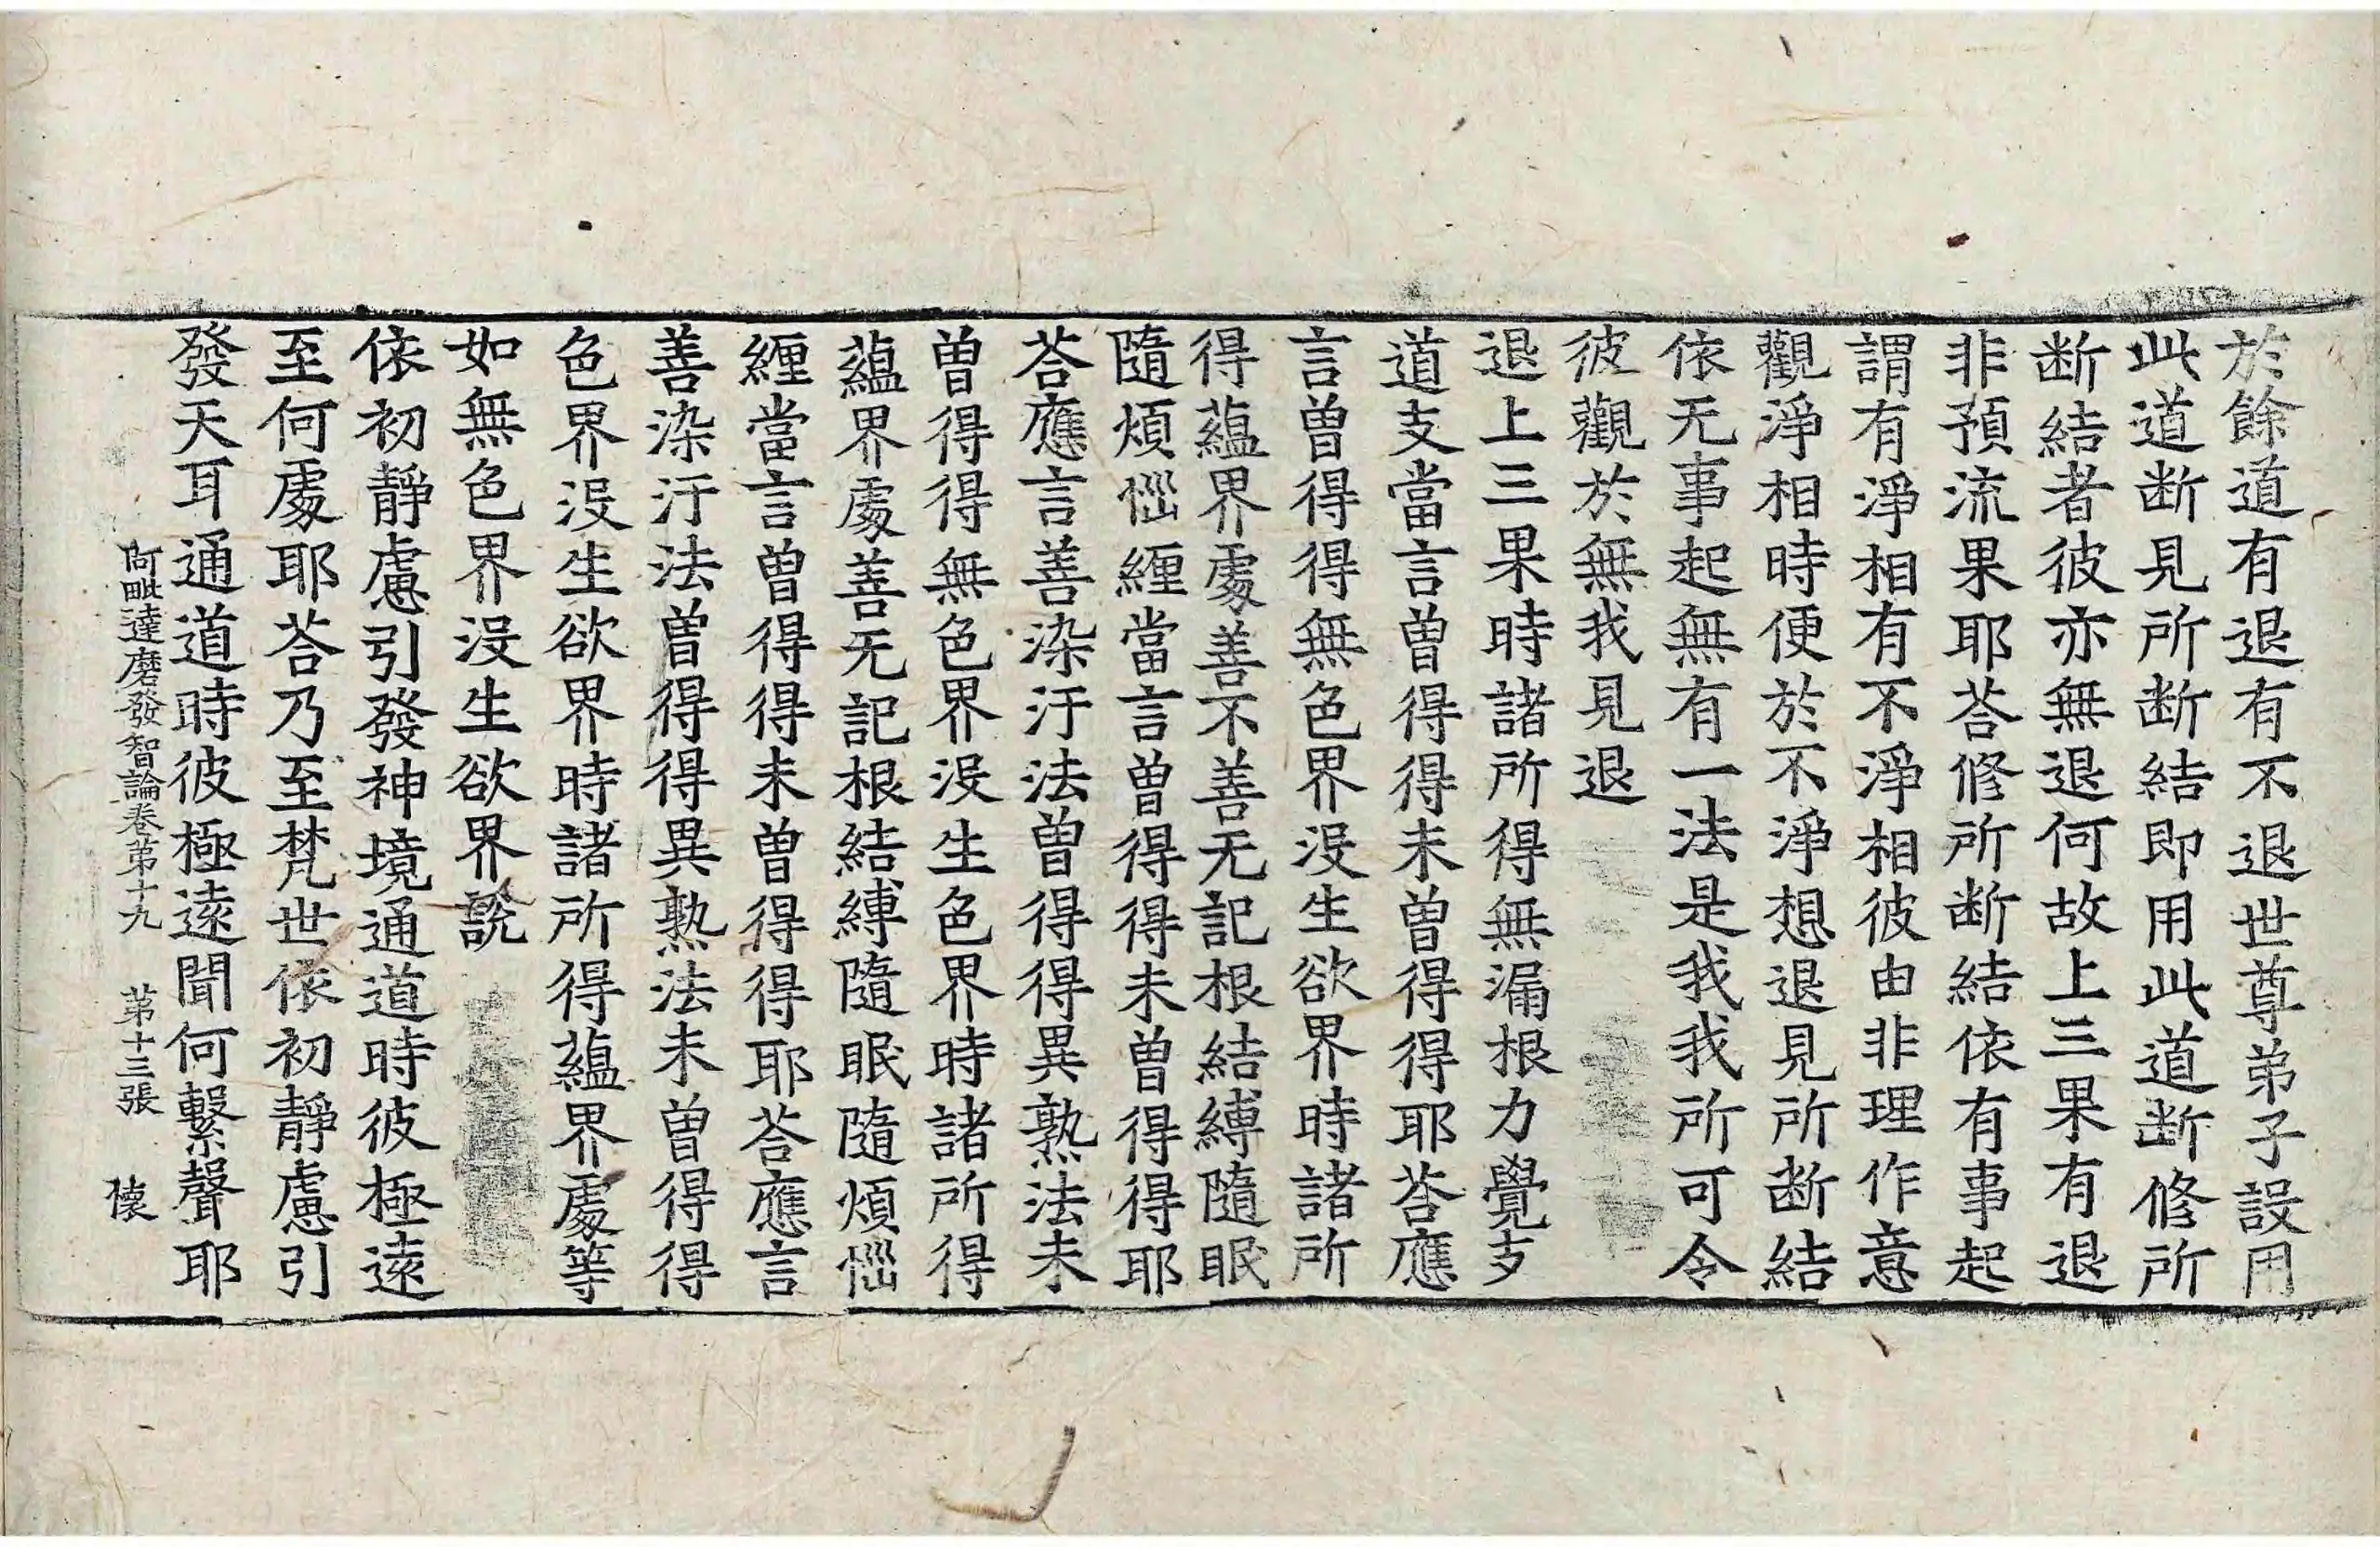 於餘道有退有不退世尊弟子設用
此道断見所断結即用此道断修所
断結者彼亦無退何故上三果有退
非預流果耶荅修所断結依有事起
謂有淨相有不淨相彼由非理作意
觀淨相時便於不淨想退見所断結
依无事起無有一法是我我所可令
彼觀於無我見退
退上三果時諸所得無漏根力覺支
道支當言曽得得未曽得得耶荅應
言曽得得無色界没生欲界時諸所
得蘊界處善不善无記根結縛隨眠
隨煩惱纏當言曽得得未曽得得耶
荅應言善染汙法曽得得異熟法未
曽得得無色界没生色界時諸所得
蘊界處善无記根結縛隨眠隨煩惱
纏當言曽得得未曽得得耶荅應言
善染汙法曽得得異熟法未曽得得
色界没生欲界時諸所得蘊界處等
如無色界没生欲界說
依初靜慮引發神境通道時彼極遠
至何處耶荅乃至梵世依初靜慮引
發天耳通道時彼極遠聞何繫聲耶
阿毗達磨發智論卷第十九 第十三張 懷